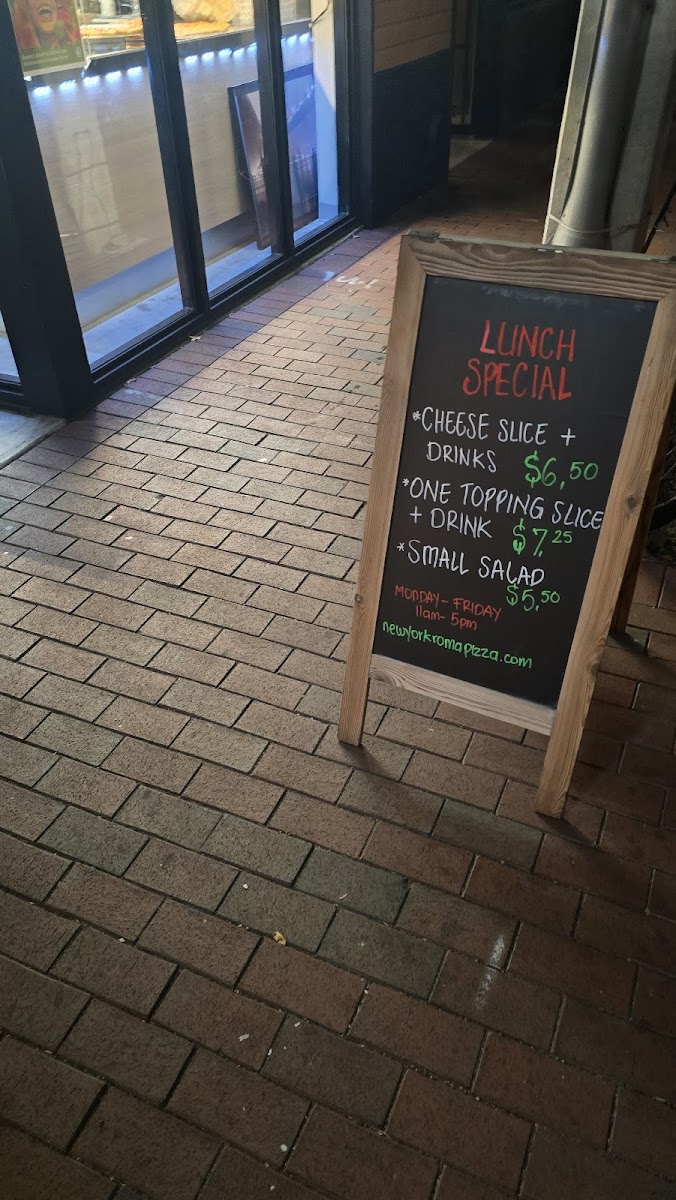 LUNCH
SPECIAL
*CHEESE SLICE +
DRINKS $6,50
*ONE TOPPING SLICE
+ DRINK $7,25
*SMALL SALAD
$5,50
MONDAY - FRIDAY
11am - 5pm
newyorkromapizza.com